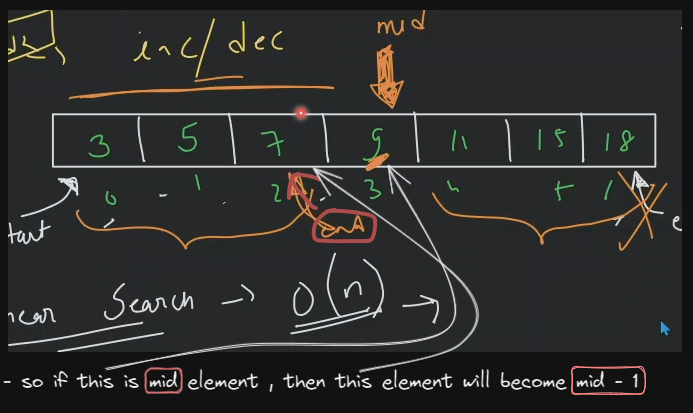 inc/dec
mid
3 5 7 9 11 15 18
0 1 2 3 4 5
tart
end
e
near Search -> O(n) ->
- so if this is mid element , then this element will become mid - 1